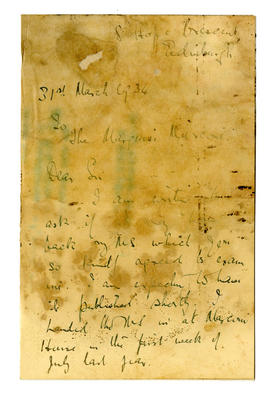 Crescent
Edinburgh
31st March 1934
To
The Marquis Marconi
Dear Sir
I am writing to
ask if my
back my MS which you
so kindly agreed to exam
ine. I am expecting to have
it published shortly. I
handed the MS in at Marconi
House in the first week of
July last year.